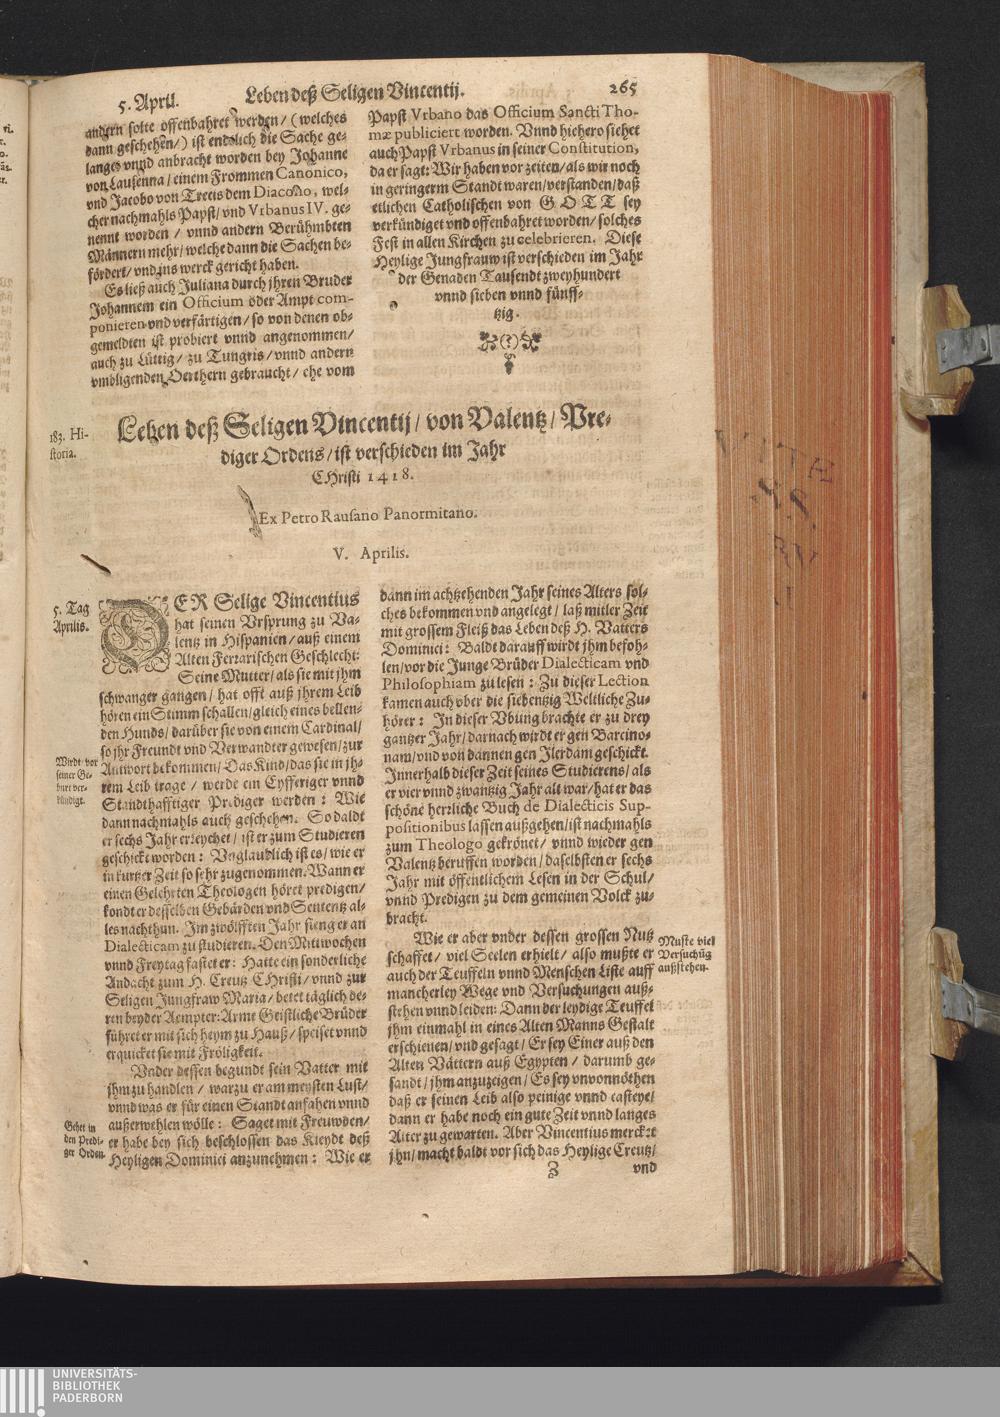 5. April.
Leben deß Seligen Vincentij.
265
andern solte offenbahret werden/ (welches
dann geschehen/) ist endtlich die Sache ge-
langes vnnd anbracht worden bey Johanne
von Lausenna/ einem Frommen Canonico,
vnd Jacobo von Trecis dem Diacono, wel-
cher nachmahls Papst/ vnd Vrbanus IV. ge-
nennt worden / vnnd andern Berühmbten
Männern mehr/ welche dann die Sachen be-
fördert/ vnd ins werck gericht haben.
Es ließ auch Juliana durch jhren Bruder
Johannem ein Officium oder Ampt com-
ponieren vnd verfärtigen/ so von denen ob-
gemeldten ist probiert vnnd angenommen/
auch zu Lüttig/ zu Tungris/ vnnd andern
vmbligenden Oerthern gebraucht/ ehe vom
Papst Vrbano das Officium Sancti Tho-
mæ publiciert worden. Vnnd hiehero siehet
auch Papst Vrbanus in seiner Constitution,
da er sagt: Wir haben vor zeiten/ als wir noch
in geringerm Standt waren/ verstanden/ daß
etlichen Catholischen von GOTT sey
verkündiget vnd offenbahret worden/ solches
Fest in allen Kirchen zu celebrieren. Diese
Heylige Jungfrauw ist verschieden im Jahr
der Genaden Tausendt zweyhundert
vnnd sieben vnnd fünff-
tzig.
(?)
183. Hi-
storia.
Leben deß Seligen Vincentij/ von Valentz/ Pre-
diger Ordens/ ist verschieden im Jahr
CHristi 1418.
Ex Petro Rausano Panormitano.
V. Aprilis.
5. Tag
Aprilis.
DER Selige Vincentius
hat seinen Vrsprung zu Va-
lentz in Hispanien/ auß einem
Alten Ferrarischen Geschlecht:
Seine Mutter/ als sie mit jhm
schwanger gangen/ hat offt auß jhrem Leib
hören ein Stimm schallen/ gleich eines bellen-
den Hunds/ darüber sie von einem Cardinal/
so jhr Freundt vnd Verwandter gewesen/ zur
Wirdt vor
seiner Ge-
burt ver-
kündigt.
Antwort bekommen/ Das Kind/ das sie in jh-
rem Leib trage/ werde ein Eyfferiger vnnd
Standthafftiger Prediger werden: Wie
dann nachmahls auch geschehen. So baldt
er sechs Jahr erreychet/ ist er zum Studieren
geschickt worden: Vnglaublich ist es/ wie er
in kurtzer Zeit so sehr zugenommen. Wann er
einen Gelehrten Theologen höret predigen/
kondt er desselben Gebärden vnd Sententz al-
les nachthun. Im zwölfften Jahr fieng er an
Dialecticam zu studieren. Den Mittwochen
vnnd Freytag fastet er: Hatte ein sonderliche
Andacht zum H. Creutz CHristi/ vnnd zur
Seligen Jungfraw Maria/ betet täglich de-
ren beyder Aempter: Arme Geistliche Brüder
führet er mit sich heym zu Hauß/ speiset vnnd
erquicket sie mit Fröligkeit.
Vnder dessen begundt sein Vatter mit
jhm zu handlen/ warzu er am meysten Lust/
vnnd was er für einen Standt anfahen vnnd
außerwehlen wölle: Saget mit Freuwden/
Gehet in
den Predi-
ger Orden.
er habe bey sich beschlossen das Kleydt deß
Heyligen Dominici anzunehmen: Wie er
dann im achtzehenden Jahr seines Alters sol-
ches bekommen vnd angelegt/ laß mitler Zeit
mit grossem Fleiß das Leben deß H. Vatters
Dominici: Baldt darauff wirdt jhm befoh-
len/ vor die Junge Brüder Dialecticam vnd
Philosophiam zu lesen: Zu dieser Lection
kamen auch vber die siebentzig Weltliche Zu-
hörer: In dieser Vbung brachte er zu drey
gantzer Jahr/ darnach wirdt er gen Barcino-
nam/ vnd von dannen gen Ilerdam geschickt.
Innerhalb dieser Zeit seines Studierens/ als
er vier vnnd zwantzig Jahr alt war/ hat er das
schöne herzliche Buch de Dialecticis Sup-
positionibus lassen außgehen/ ist nachmahls
zum Theologo gekrönet/ vnnd wieder gen
Valentz beruffen worden/ daselbsten er sechs
Jahr mit öffentlichem Lesen in der Schul/
vnnd Predigen zu dem gemeinen Volck zu-
bracht.
Wie er aber vnder dessen grossen Nutz
schaffet/ viel Seelen erhielt/ also mußte er
auch der Teuffeln vnnd Menschen Liste auff
mancherley Wege vnd Versuchungen auß-
stehen vnnd leiden: Dann der leydige Teuffel
Muste viel
Versuchūg
außstehen.
jhm einmahl in eines Alten Manns Gestalt
erschienen/ vnd gesagt/ Er sey Einer auß den
Alten Vättern auß Egypten/ darumb ge-
sandt/ jhm anzuzeigen/ Es sey vnvonnöthen
daß er seinen Leib also peinige vnnd casteye/
dann er habe noch ein gute Zeit vnnd langes
Alter zu gewarten. Aber Vincentius mercket
jhn/ macht baldt vor sich das Heylige Creutz/
Z
vnd
UNIVERSITÄTS-
BIBLIOTHEK
PADERBORN